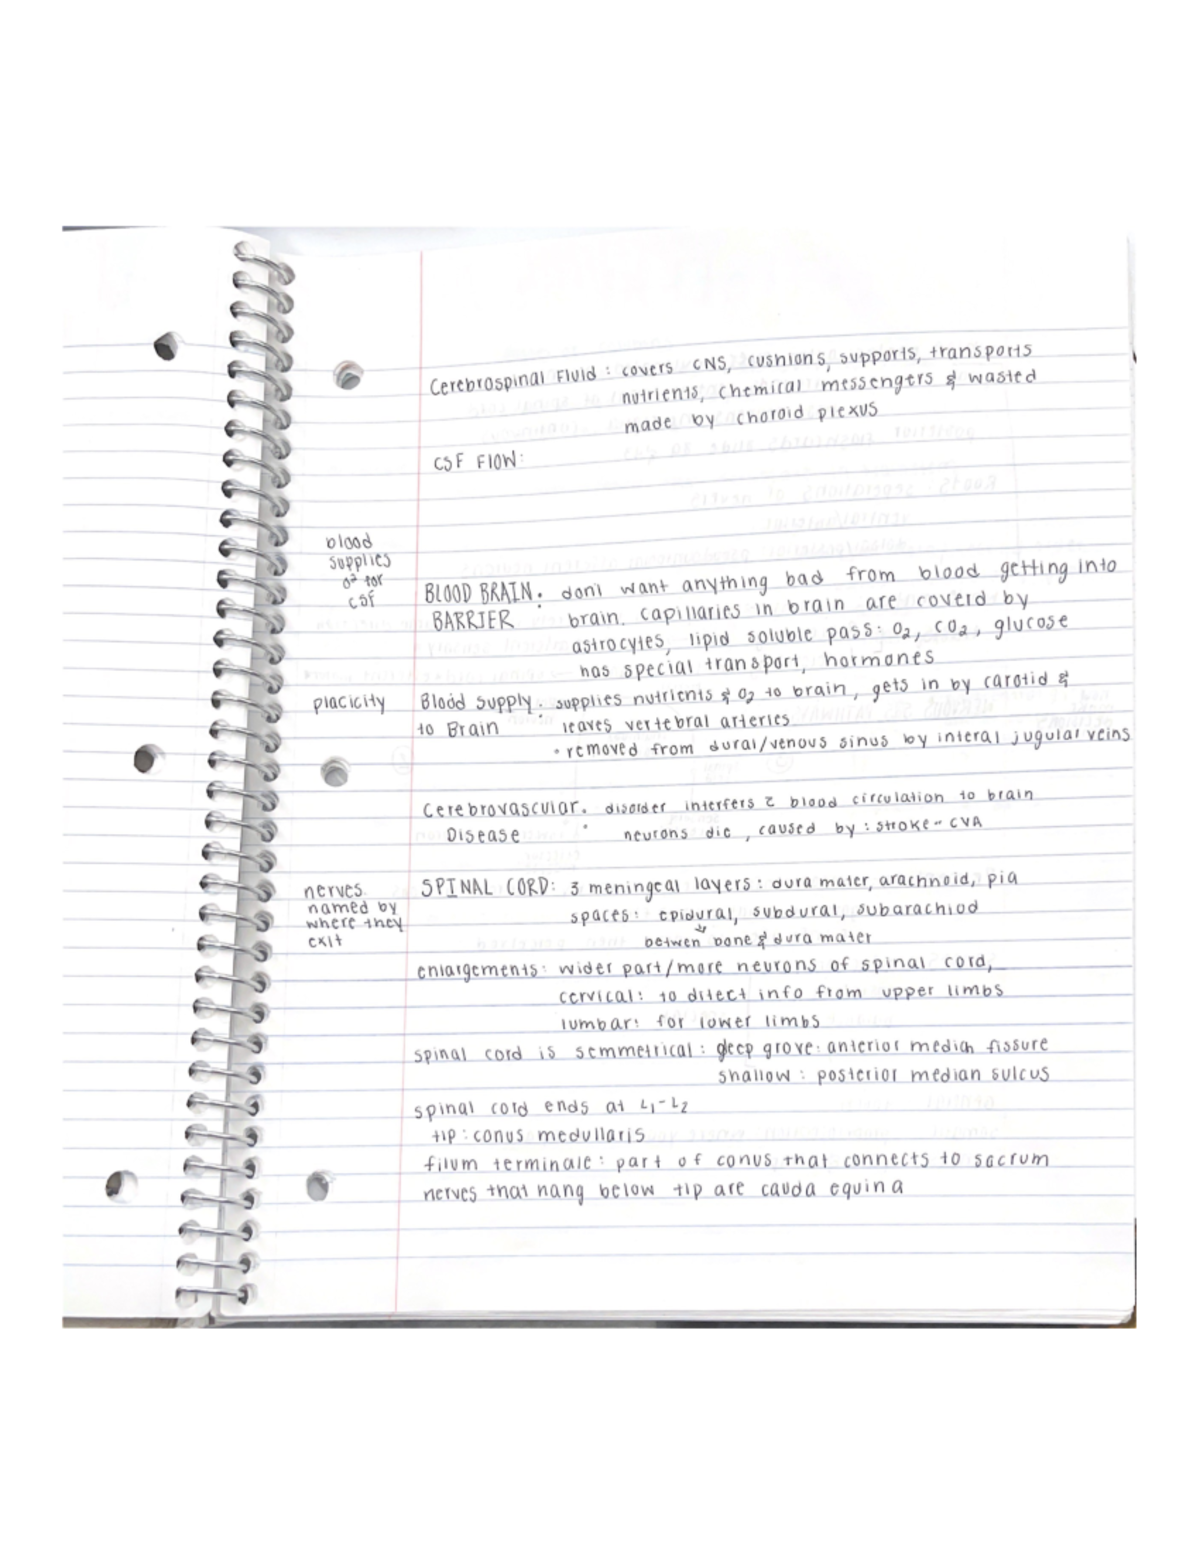 Cerebrospinal Fluid : covers CNS, cushions, supports, transports
nutrients, chemical messengers & wasted
made by choroid plexus
CSF Flow:
blood
supplies
O² for
csf
BLOOD BRAIN : don't want anything bad from blood getting into
BARRIER brain. capillaries in brain are coverd by
astrocytes, lipid soluble pass: O₂, CO₂, glucose
has special transport, hormones
placicity
Blood supply : supplies nutrients & O₂ to brain, gets in by carotid &
to Brain leaves vertebral arteries
• removed from dural/venous sinus by interal jugular veins
Cerebrovascular : disorder interfers c̄ blood circulation to brain
Disease neurons die, caused by : stroke - CVA
nerves
named by
where they
exit
SPINAL CORD: 3 meningeal layers : dura mater, arachnoid, pia
spaces: epidural, subdural, subarachiod
betwen bone & dura mater
enlargements: wider part/more neurons of spinal cord,
cervical: to ditect info from upper limbs
lumbar: for lower limbs
spinal cord is semmetrical : deep grove: anterior median fissure
shallow : posterior median sulcus
spinal cord ends at L₁-L₂
tip : conus medullaris
filum terminale : part of conus that connects to sacrum
nerves that hang below tip are cauda equina